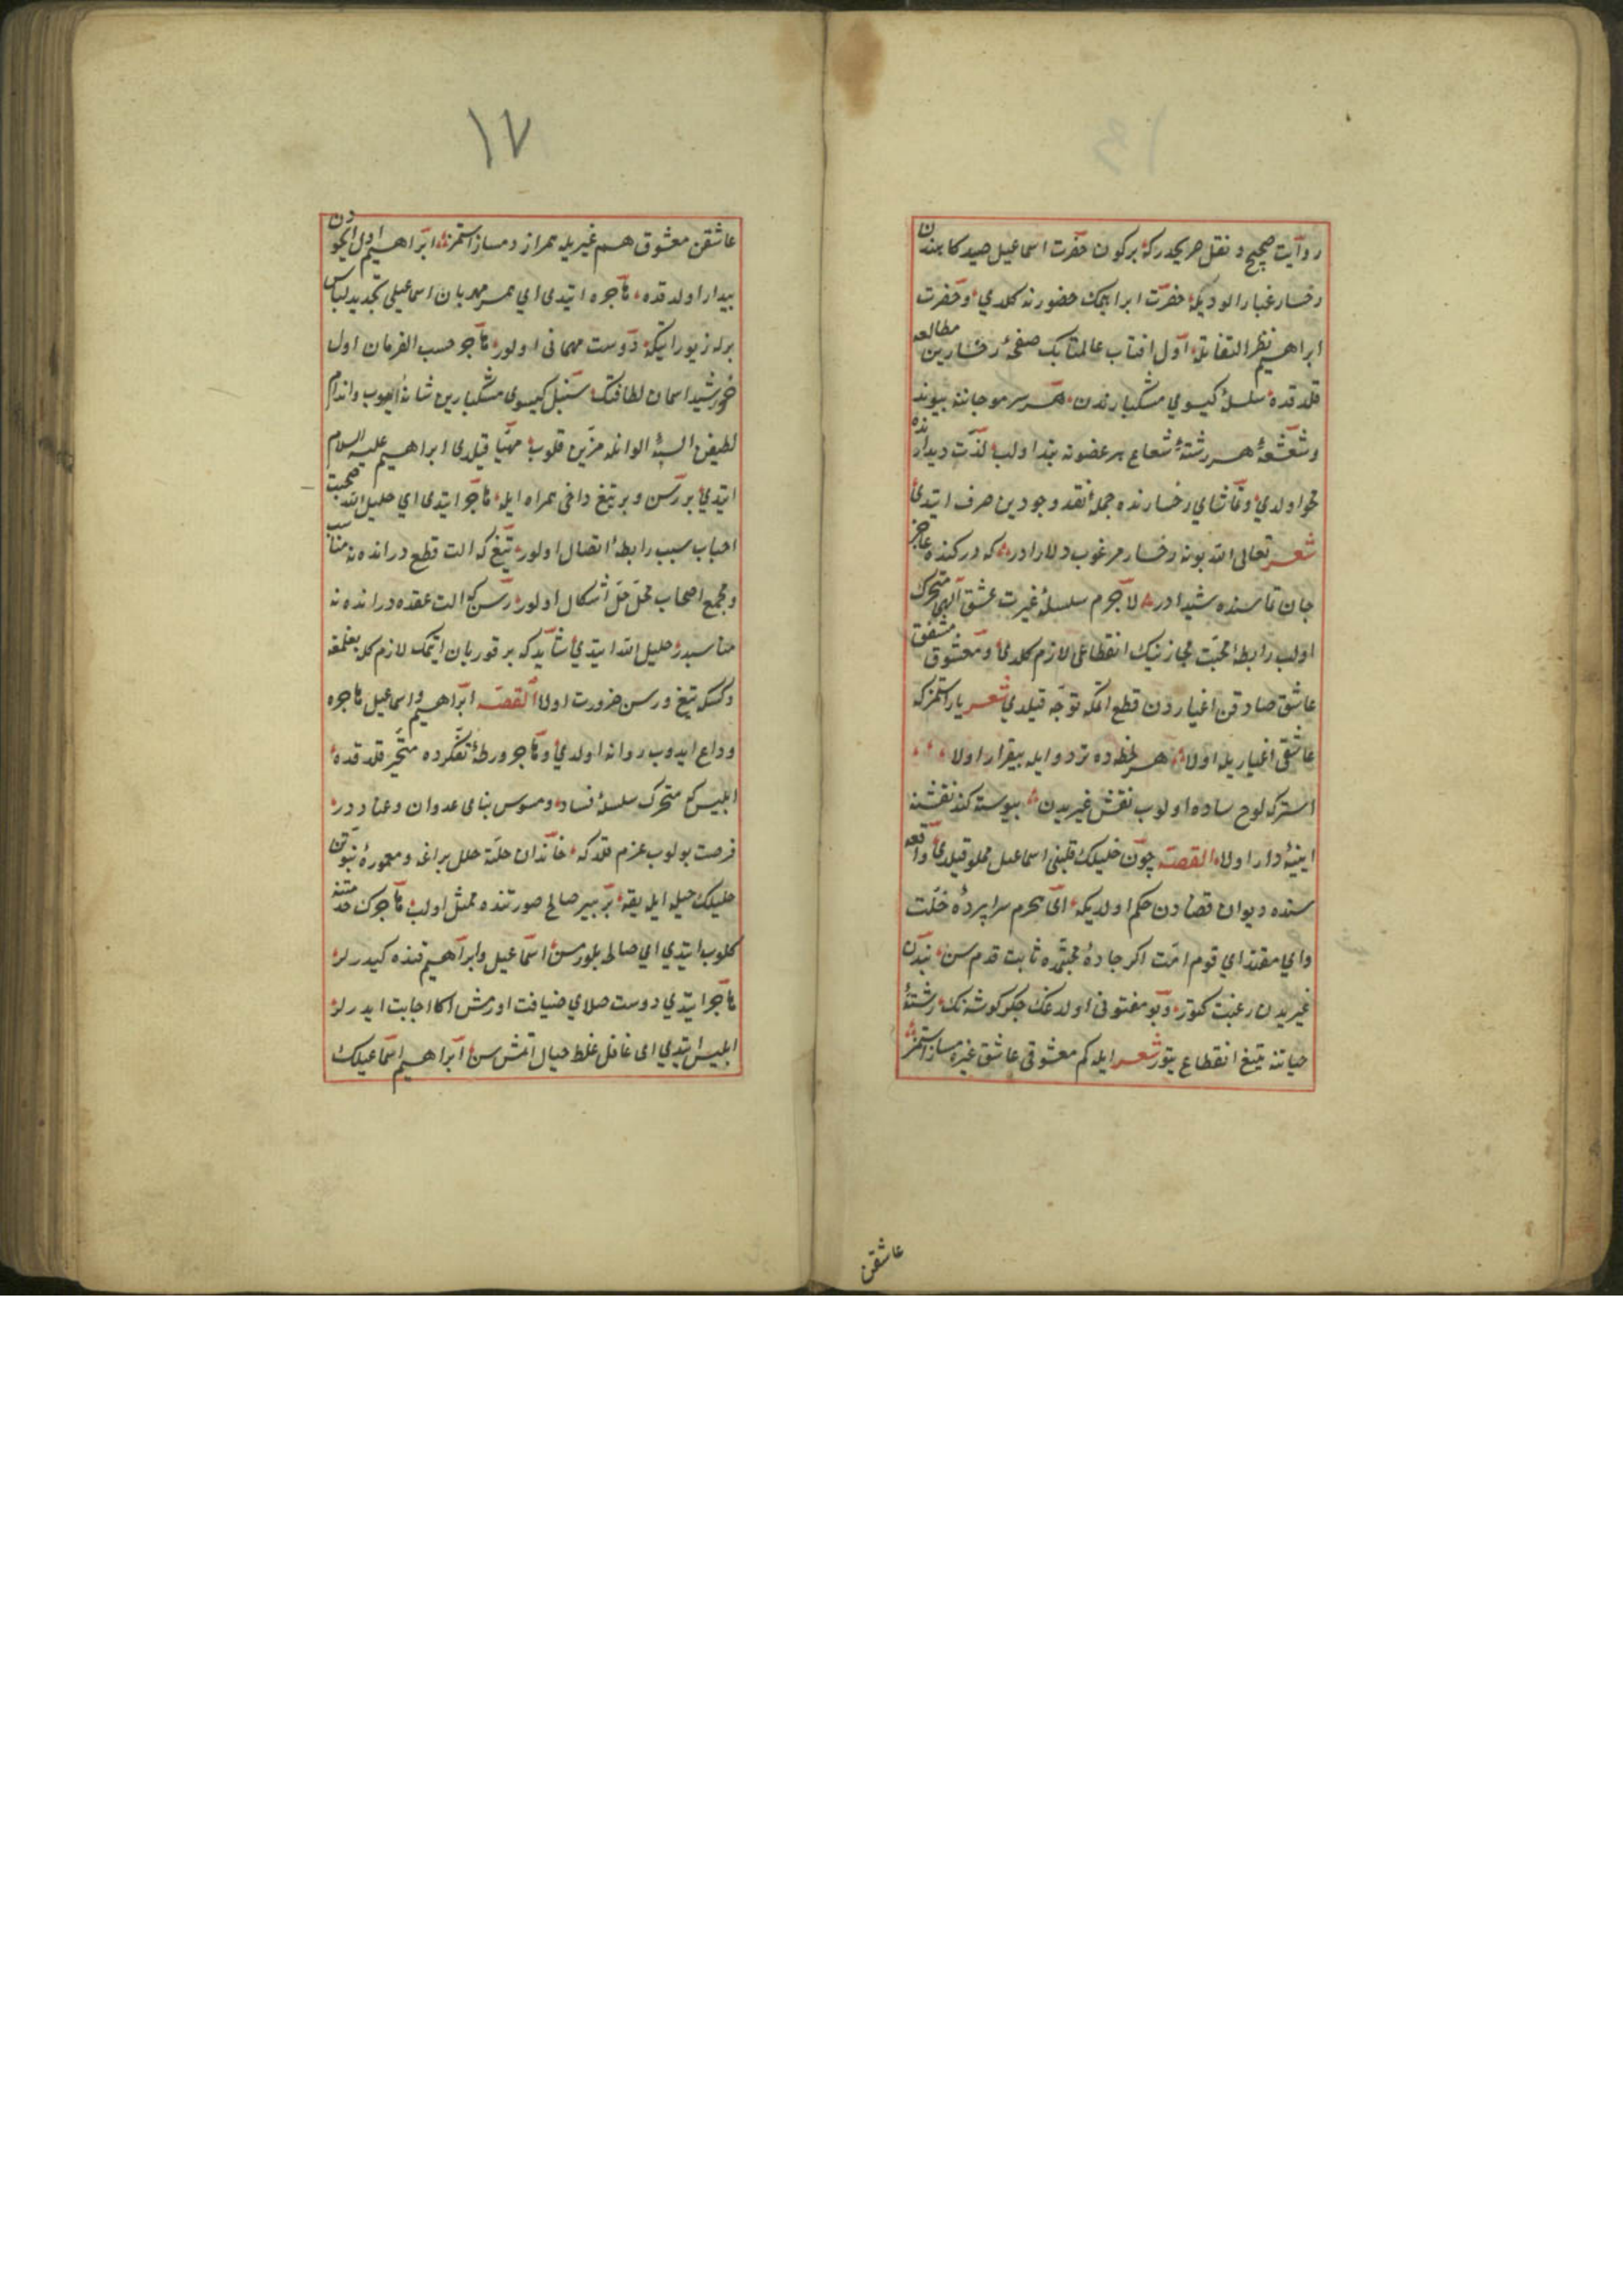 روایت صحیح و نقل صریحدر که بر کون حضرت اسماعیل صیدکاهندن
رخسار غبار الودیله حضرت ابراهیمک حضورنه کلدی و حضرت
ابراهیم نظر التفاتله اول افتاب عالمتابک صفحۀ رخسارین مطالعه
قلدقده سلسلۀ کیسوی مشکبارندن هر سر مو جاننه پیوند
وشعشعۀ هر رشتۀ شعاع بر عضونه بند اولب لذت دیدارنده
محو اولدی و تماشای رخسارنده جملۀ نقد وجودین صرف ایتدی
شعر تعالی الله بو نه رخسار مرغوب دلارادر که درکنده عاجز
جان تماسنده شیدادر لاجرم سلسلۀ غیرت عشق الهی متحرک
اولب رابطۀ محبت مجازینک انقطاعی لازم کلدی و معشوق مشفق
عاشق صادقن اغیاردن قطع اتمکه توجه قیلدی شعر یار استمز که
عاشقی اغیاریله اولا هر لحظه ده تردد ایله بیقرار اولا
استر که لوح ساده اولوب نقش غیریدن پیوسته کند نقشنه
اینیه دار اولا القصه چون خلیلک قلبنی اسماعیل مملو قیلدی واقعه
سنده دیوان قضادن حکم اولدیکه ای محرم سراپردۀ خلت
وای مقتدای قوم امت اکر جادۀ محبتمده ثابت قدم سن بندن
غیریدن رغبت کتور و بو مفتونی اولدغک جکر کوشه نک رشتۀ
حیاتنه تیغ انقطاع یتور شعر ایله کم معشوقی عاشق غیره دمساز استمز
عاشقن
۱۷
عاشقن معشوق هم غیریله همراز دمساز استمز ابراهیم اول ایحودن
بیدار اولدقده هاجره ایتدی ای همسر مهربان اسماعیلی تجدید لباس
برله زیور ایتکه دوست مهمانی اولور هاجر حسب الفرمان اول
خورشید اسمان لطافتک سنبل کیسوی مشکبارین شانه ایعوب واندام
لطیفن البسۀ الوانله مزین قلوب مهیا قیلدی ابراهیم علیه السلام
ایتدی بر رسن و بر تیغ داخی همراه ایله هاجر ایتدی ای خلیل الله صحبت
احباب سبب رابطۀ اتصال اولور تیغ که الت قطع در انده نه مناسب
ومجمع اصحاب محل حل اشکال اولور رسن که الت عقده در انده نه
مناسبدر خلیل الله ایتدی شاید که بر قوربان ایتمک لازم کله بغلمغه
وکسمکه تیغ و رسن ضرورت اولا القصه ابراهیم و اسماعیل هاجره
وداع ایدوب روانه اولدی و هاجر ورطۀ تفکرده متحیر قلدقده
ابلیس که متحرک سلسلۀ فساد و موسس بنای عدوان و عناددر
فرصت بولوب عزم قلدکه خاندان خلته خلل براغه و معمورۀ نبوتن
خلیلک حیله ایله یقه بر پیر صالح صورتنده ممثل اولب هاجرک خدمتنه
کلوب ایتدی ای صالحه بلورمسن اسماعیل و ابراهیم قنده کیدرلر
هاجر ایتدی دوست صلای ضیافت اورمش اکا اجابت ایدرلر
ابلیس ایتدی ای غافل غلط خیال اتمش سن ابراهیم اسماعیلک